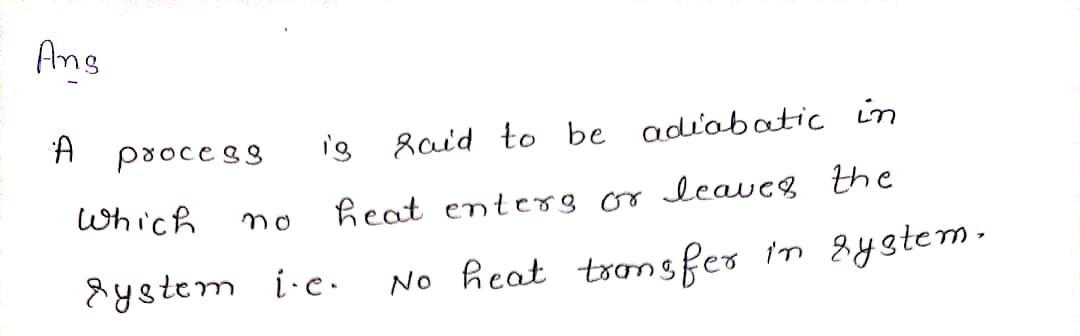 Ans
A process is said to be adiabatic in
which no heat enters or leaves the
system i.e. No heat transfer in system.